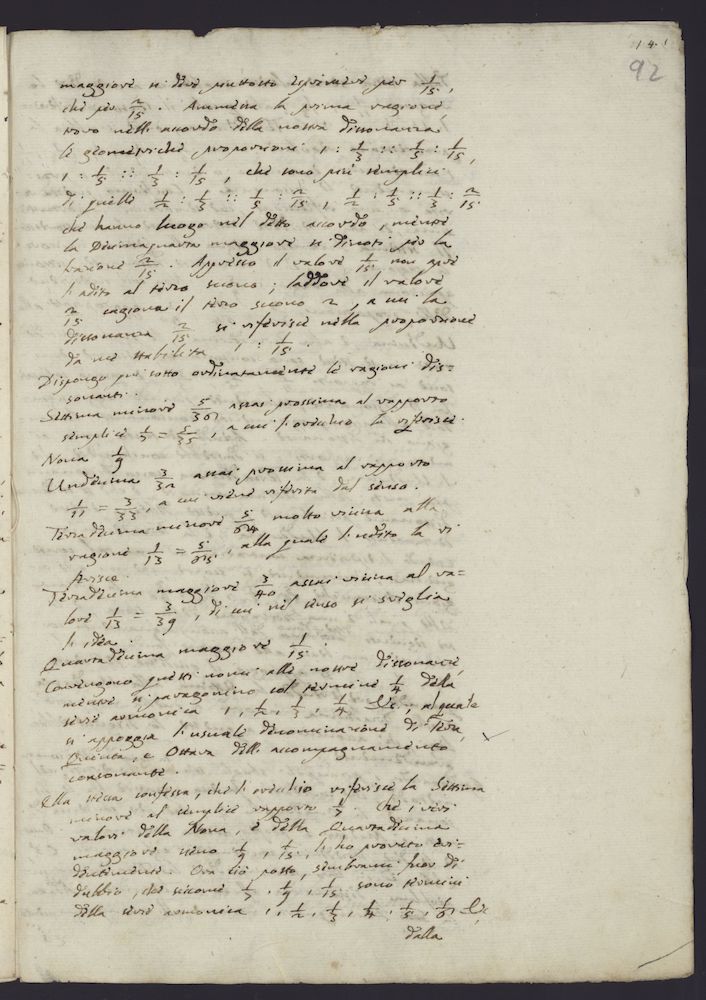 14.
92
maggiore si deve piuttosto esprimere per 1/15,
che per 2/15. Ammessa la prima ragione,
trovo nell'accordo della nostra dissonanza
le geometriche proporzioni 1 : 1/3 :: 1/5 : 1/15,
1 : 1/5 :: 1/3 : 1/15, che sono più semplici
di quelle 1/2 : 1/3 :: 1/5 : 2/15, 1/2 : 1/5 :: 1/3 : 2/15
che hanno luogo nel detto accordo, mentre
la Decimaquarta maggiore si denoti per la
frazione 2/15. Appresso il valore 1/15 non apre
l'adito al terzo suono; laddove il valore
2/15 cagiona il terzo suono 2, a cui la
dissonanza 2/15 si riferisce nella proporzione
da me stabilita 1 : 1/15.
Dispongo quì sotto ordinatamente le ragioni dis=
sonanti.
Settima minore 5/36 assai prossima al rapporto
semplice 1/7 = 5/35, a cui l'orecchio la riferisce.
Nona 1/9
Undecima 3/32 assai prossima al rapporto
1/11 = 3/33, a cui viene riferita dal senso.
Terzadecima minore 5/64 molto vicina alla
ragione 1/13 = 5/65, alla quale l'udito la ri
ferisce.
Terzadecima maggiore 3/40 assai vicina al va=
lore 1/13 = 3/39, di cui nel senso si sveglia
l'idea.
Quartadecima maggiore 1/15.
Convengono questi nomi alle nostre dissonanze,
mentre si paragonino col termine 1/4 della
serie armonica 1, 1/2, 1/3, 1/4 &c.; al quale
si appoggia l'usuale denominazione di Terza,
Quinta, e Ottava dell'accompagnamento
consonante.
Ella stessa confessa, che l'orecchio riferisce la Settima
minore al semplice rapporto 1/7. Che i veri
valori della Nona, e della Quartadecima
maggiore sieno 1/9, 1/15, l'ho provato evi=
dentemente. Ora ciò posto, sembrami fuor di
dubbio, che siccome 1/7, 1/9, 1/15 sono termini
della serie armonica 1, 1/2, 1/3, 1/4, 1/5, 1/6, &c
dalla